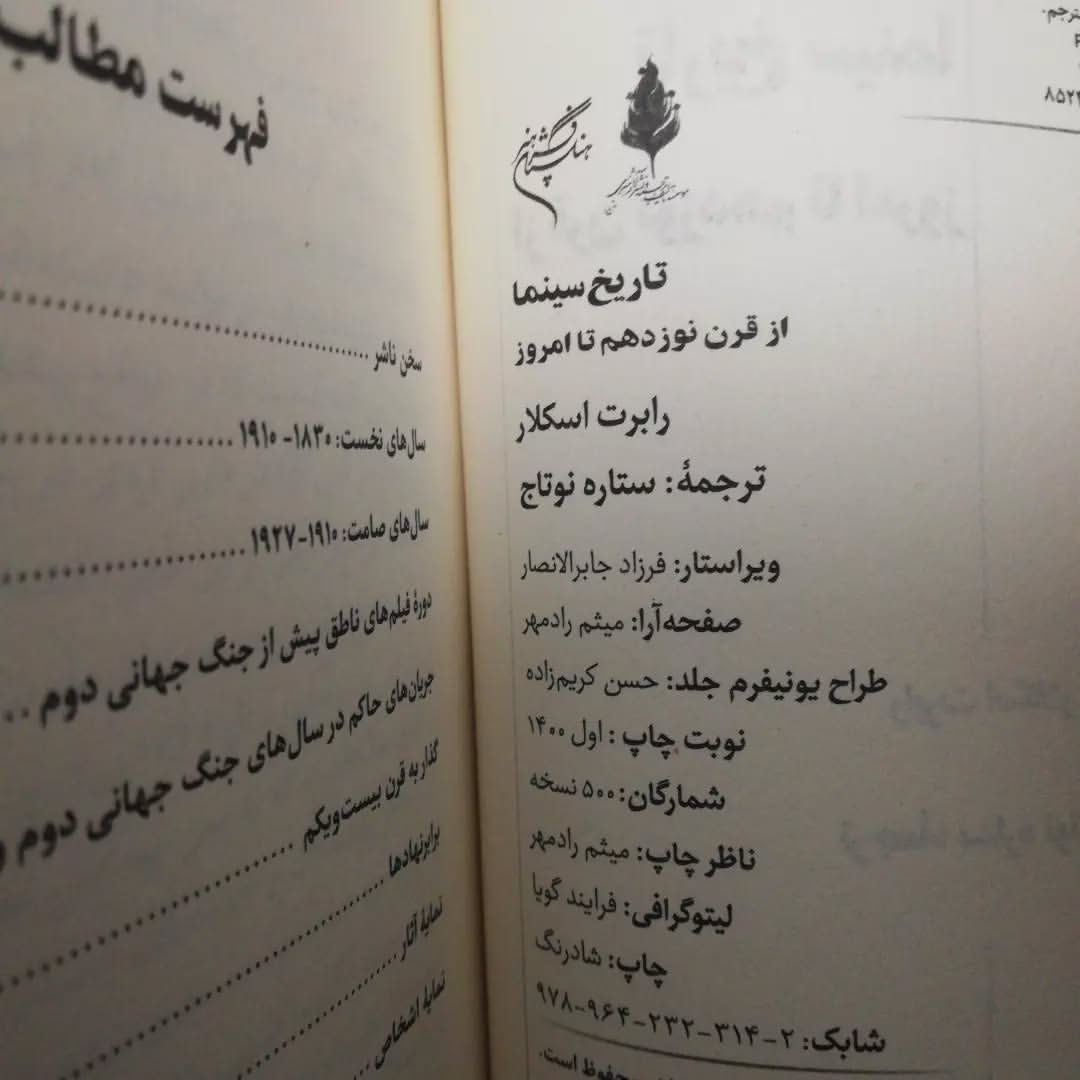 مترجم.
۸۵۲۲
هنرستان گرافیک هنر
تاریخ سینما
از قرن نوزدهم تا امروز
رابرت اسکلار
ترجمهٔ: ستاره نوتاج
ویراستار: فرزاد جابرالانصار
صفحه‌آرا: میثم رادمهر
طراح یونیفرم جلد: حسن کریم‌زاده
نوبت چاپ: اول ۱۴۰۰
شمارگان: ۵۰۰ نسخه
ناظر چاپ: میثم رادمهر
لیتوگرافی: فرایند گویا
چاپ: شادرنگ
شابک: ۲-۳۱۴-۲۳۲-۹۶۴-۹۷۸
محفوظ است.
فهرست مطالب
سخن ناشر
سال‌های نخست: ۱۸۳۰-۱۹۱۰
سال‌های صامت: ۱۹۱۰-۱۹۲۷
دورهٔ فیلم‌های ناطق پیش از جنگ جهانی دوم
جریان‌های حاکم در سال‌های جنگ جهانی دوم و
گذار به قرن بیست‌ویکم
برابرنهادها
نمایهٔ آثار
نمایهٔ اشخاص